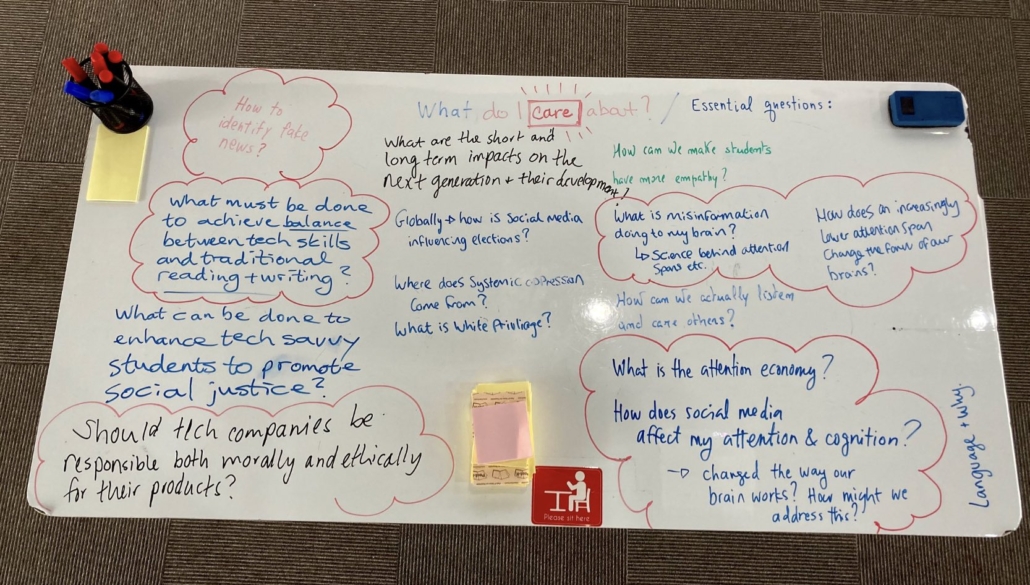 What do I care about? / Essential questions:
How to
identify fake
news?
What are the short and
long term impacts on the
next generation + their development?
How can we make students
have more empathy?
What must be done
to achieve balance
between tech skills
and traditional
reading + writing?
Globally → how is social media
influencing elections?
What is misinformation
doing to my brain?
↳ Science behind attention
spans etc.
How does an increasingly
lower attention span
change the form of our
brains?
Where does Systemic oppression
come from?
What is white privilage?
How can we actually listen
and care others?
What can be done to
enhance tech savvy
students to promote
social justice?
What is the attention economy?
How does social media
affect my attention & cognition?
→ changed the way our
brain works? How might we
address this?
Should tech companies be
responsible both morally and ethically
for their products?
Language + why.
Please sit here